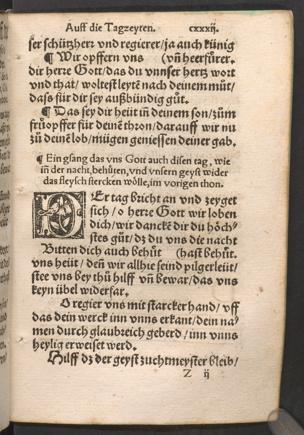 Auff die Tagzeyten. cxxxij.
ser schützherr vnd regierer/ja auch künig
¶ Wir opffern vns (vñ heerfürer.
dir herre Gott/das du vnnser hertz wort
vnd that/ woltest leytē nach deinem müt/
dass für dir sey außbündig güt.
¶ Das sey dir heüt iñ deinem son/züm
früopffer für deinē thron/darauff wir nu
zü deinē lob/mügen geniessen deiner gab.
¶ Ein gsang das vns Gott auch disen tag, wie
in der nacht, behüten, vnd vnsern geyst wider
das fleysch stercken wölle, im vorigen thon.
DEr tag bricht an vnd zeyget
sich/ o herre Gott wir loben
dich/wir danckē dir du höchs/
stes güt/dz du vns die nacht
Bitten dich auch behüt (hast behüt.
vns heüt/ deñ wir allhie seind pilgerleüt/
stee vns bey thü hilff vñ bewar/das vns
keyn übel widerfar.
O regier vns mit starcker hand/ vff
das dein werck inn vnns erkant/dein na/
men durch glaubreich geberd/ inn vnns
heylig erweiset werd.
Hilff dz der geyst zuchtmeyster bleib/
Z ij